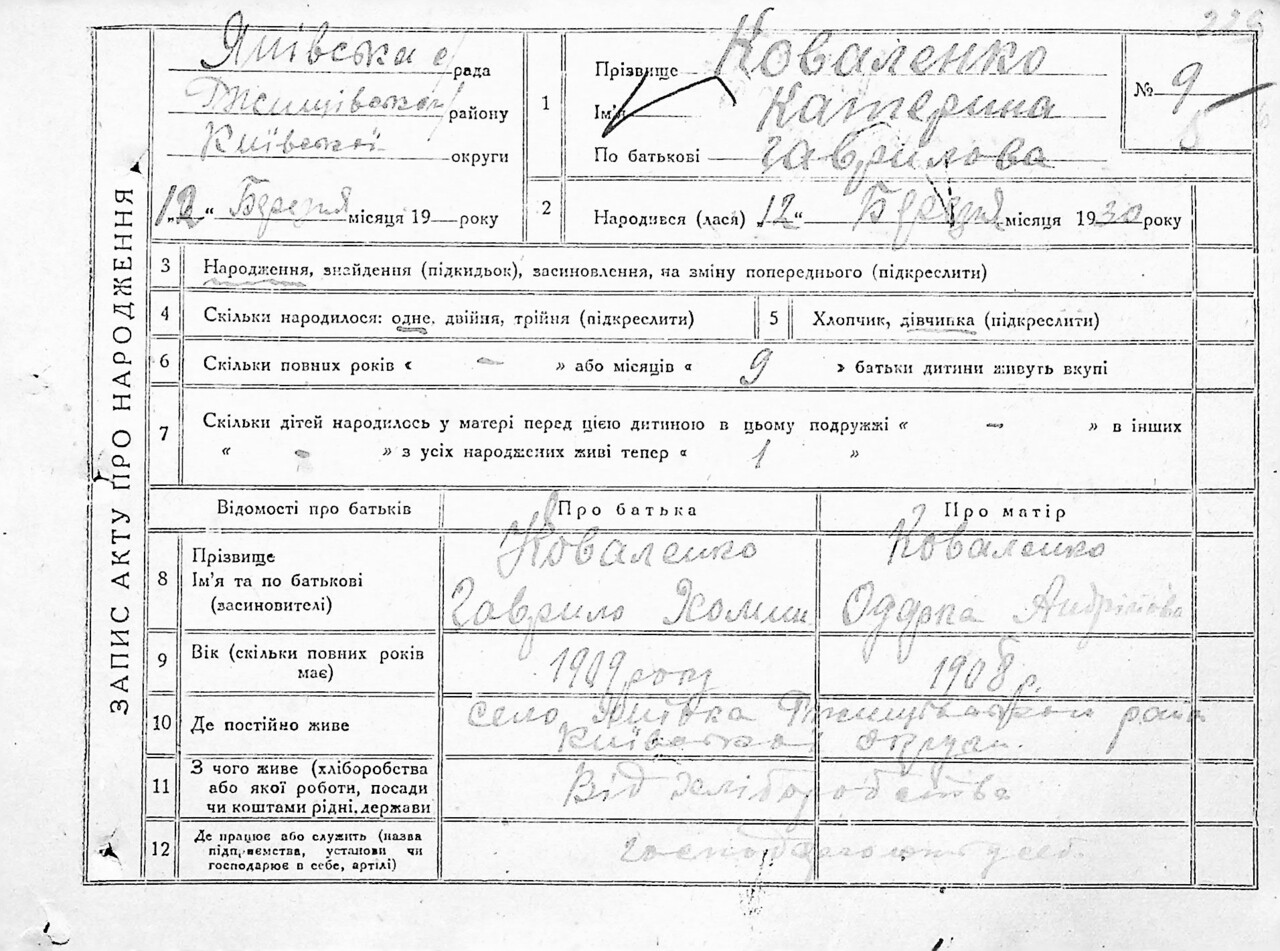 ЗАПИС АКТУ ПРО НАРОДЖЕННЯ
рада
району
Київської округи
12 Березня місяця 19 року
1
Прізвище Коваленко
Ім'я Катерина
По батькові Гаврилова
№ 9
2
Народився (лася) „12“ Березня місяця 1930 року
3 Народження, знайдення (підкидьок), засиновлення, на зміну попереднього (підкреслити)
4 Скільки народилося: одне, двійня, трійня (підкреслити) 5 Хлопчик, дівчинка (підкреслити)
6 Скільки повних років « — » або місяців « 9 » батьки дитини живуть вкупі
7 Скільки дітей народилось у матері перед цією дитиною в цьому подружжі « — » в інших
« - » з усіх народжених живі тепер « 1 »
Відомості про батьків Про батька Про матір
8 Прізвище Коваленко Коваленко
Ім'я та по батькові Гаврило Хомич Оддрка Андріїова
(засиновителі)
9 Вік (скільки повних років 1909 року 1908 р.
має)
10 Де постійно живе село
Київської округи.
11 З чого живе (хліборобства Від хліборобства
або якої роботи, посади
чи коштами рідні, держави
12 Де працює або служить (назва
підприємства, установи чи
господарює в себе, артілі)